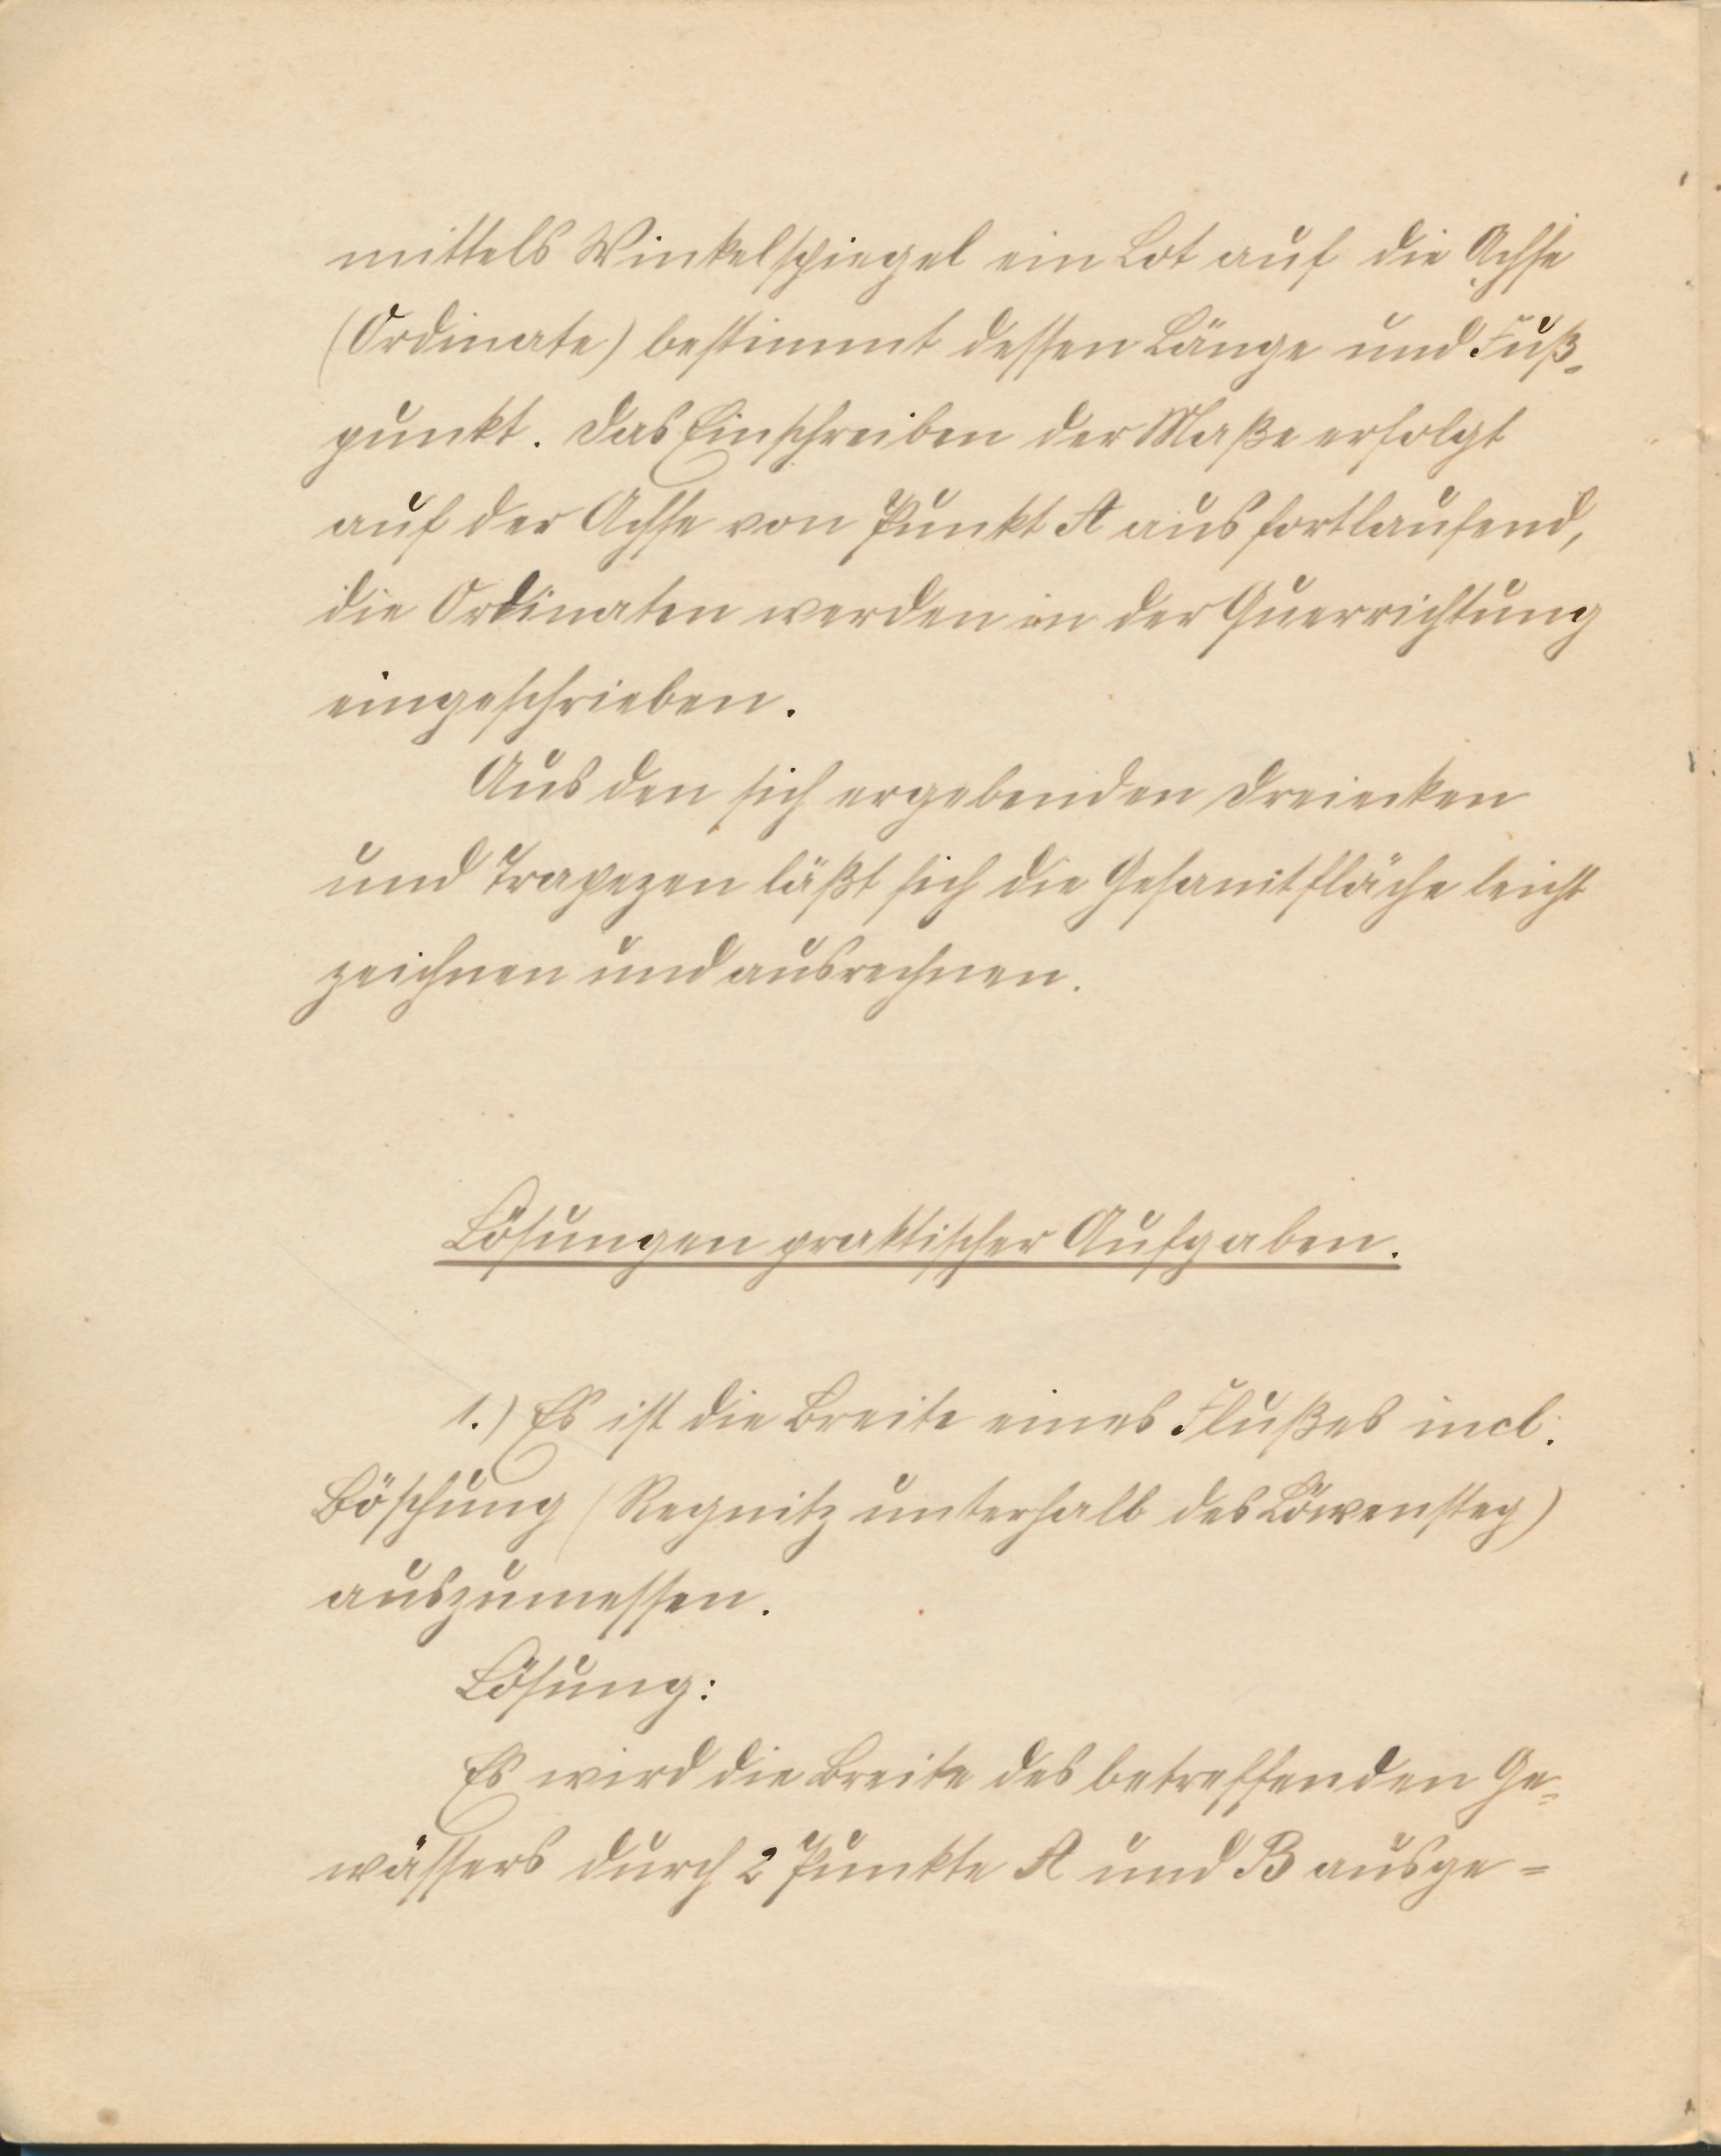 mittels Winkelspiegel ein Lot auf die Achse
(Ordinate) bestimmt dessen Länge und Fuß-
punkt. Das Einschreiben der Maße erfolgt
auf der Achse von Punkt A aus fortlaufend,
die Ordinaten werden in der Querrichtung
eingeschrieben.
Aus den sich ergebenden Dreiecken
und Trapezen läßt sich die Gesamtfläche leicht
zeichnen und ausrechnen.
Lösungen praktischer Aufgaben.
1.) Es ist die Breite eines Flußes incl.
Böschung (Regnitz unterhalb des Löwensteg)
auszumessen.
Lösung:
Es wird die Breite des betreffenden Ge-
wässers durch 2 Punkte A und B ausge-